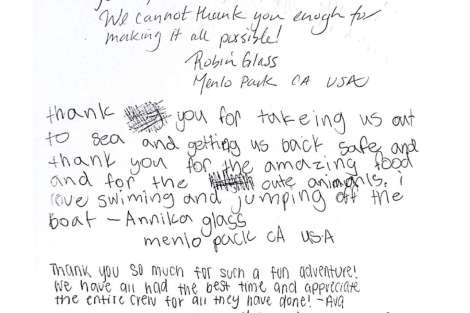 We cannot thank you enogh for
making it all possible!
Robin Glass
Menlo Park CA USA
thank you for takeing us out
to sea and getting us back safe, and
thank you for the amazing food
and for the cute animals. i
love swiming and jumping off the
boat - Annika glass
menlo park CA USA
Thank you so much for such a fun adventure!
We have all had the best time and appreciate
the entire crew for all they have done! - Ava